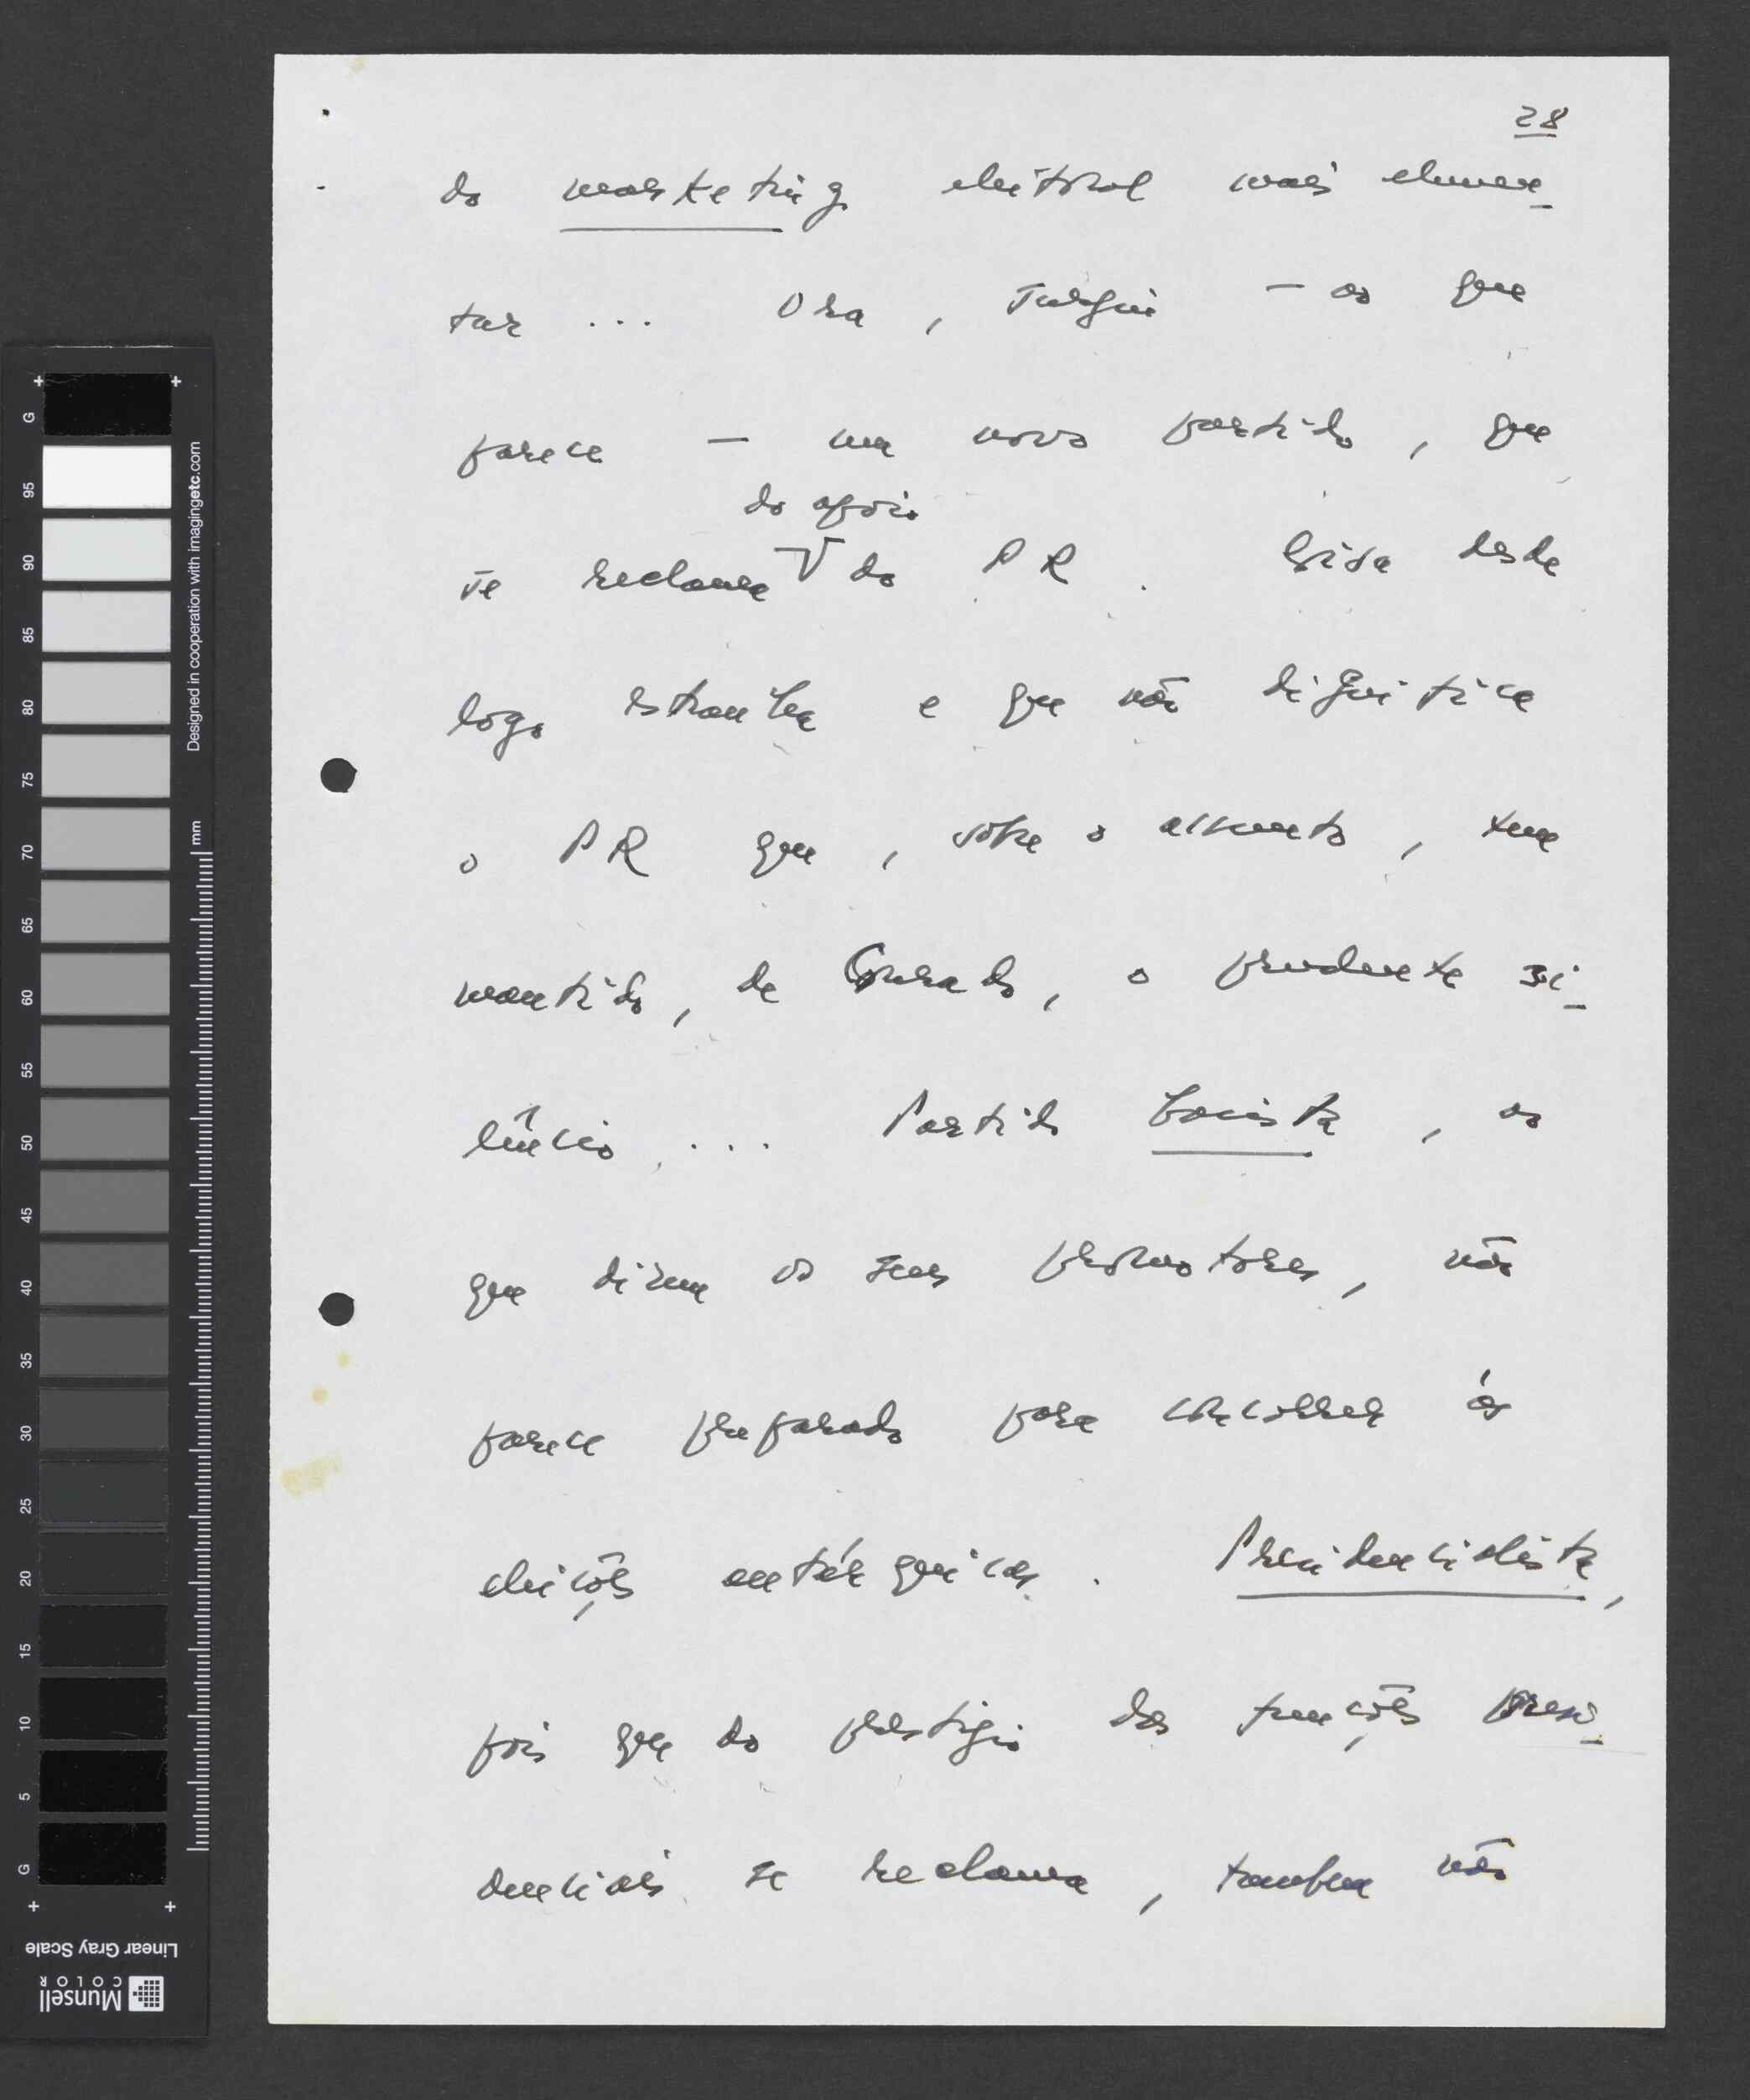 28
do marketing eleitoral mais elemen-
tar ... Ora, surgiu - ao que
parece - um novo partido, que
do apoio
se reclama V do PR. Coisa desde
logo estranha e que não dignifica
o PR que, sobre o assunto, tem
mantido, de Conrado, o prudente si-
lêncio ... Partido basista, ao
que dizem os seus promotores, não
parece preparado para concorrer às
eleições autárquicas. Presidencialista,
pois que do prestígio das funções presi-
denciais se reclama, tambem não
G
95
90
85
80
75
70
65
60
55
50
45
40
35
30
25
20
15
10
5
G
mm
Designed in cooperation with imagingetc.com
Linear Gray Scale
Munsell
COLOR